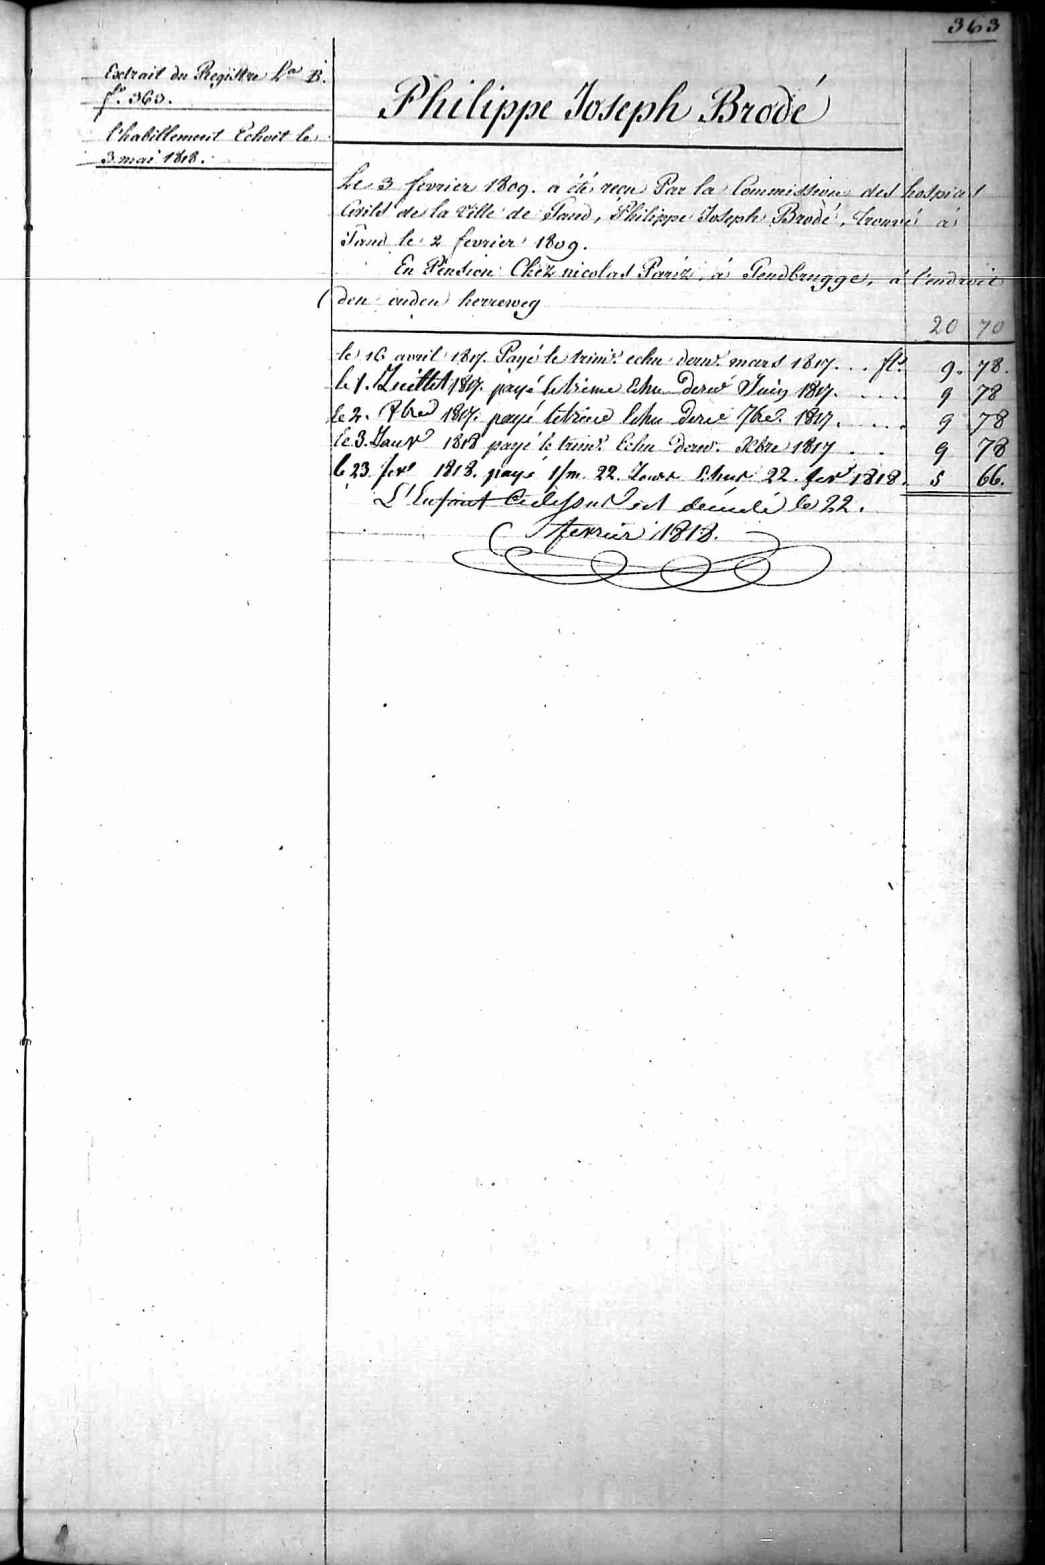 363
Extrait du Regístre La B.
fo. 363.
l'habillement Echoit le
3 mai 1818.
Philippe Joseph Brodé
Le 3 fevrier 1809. a été recu Par la Commission des hospices
Civils de la Ville de Gand, Philippe Joseph Brodé, trouvé á
Gand le 2 fevrier 1809.
En Pension Chez nicolas Pariz, á Gendbrugge, á l'endroit
den ouden herreweg
20 70
le 16 avril 1817. Payé le trimre echu dernr mars 1817. . . fls 9. 78.
le 1. Juillet 1817. payé le trime Echu derné Juin 1817. . . . . 9 78
le 2. 8bre 1817. payé le trime Echu derne 7bre 1817. . . . . 9 78
le 3. Janvr 1818 payé le trimre Echu dernr. Xbre 1817 . . 9 78
le 23 fevr 1818. payé 1/m. 22. Jours Echus 22. fevr 1818. 5 66.
L'Enfant Cidessus est décédé le 22.
fevrier 1818.